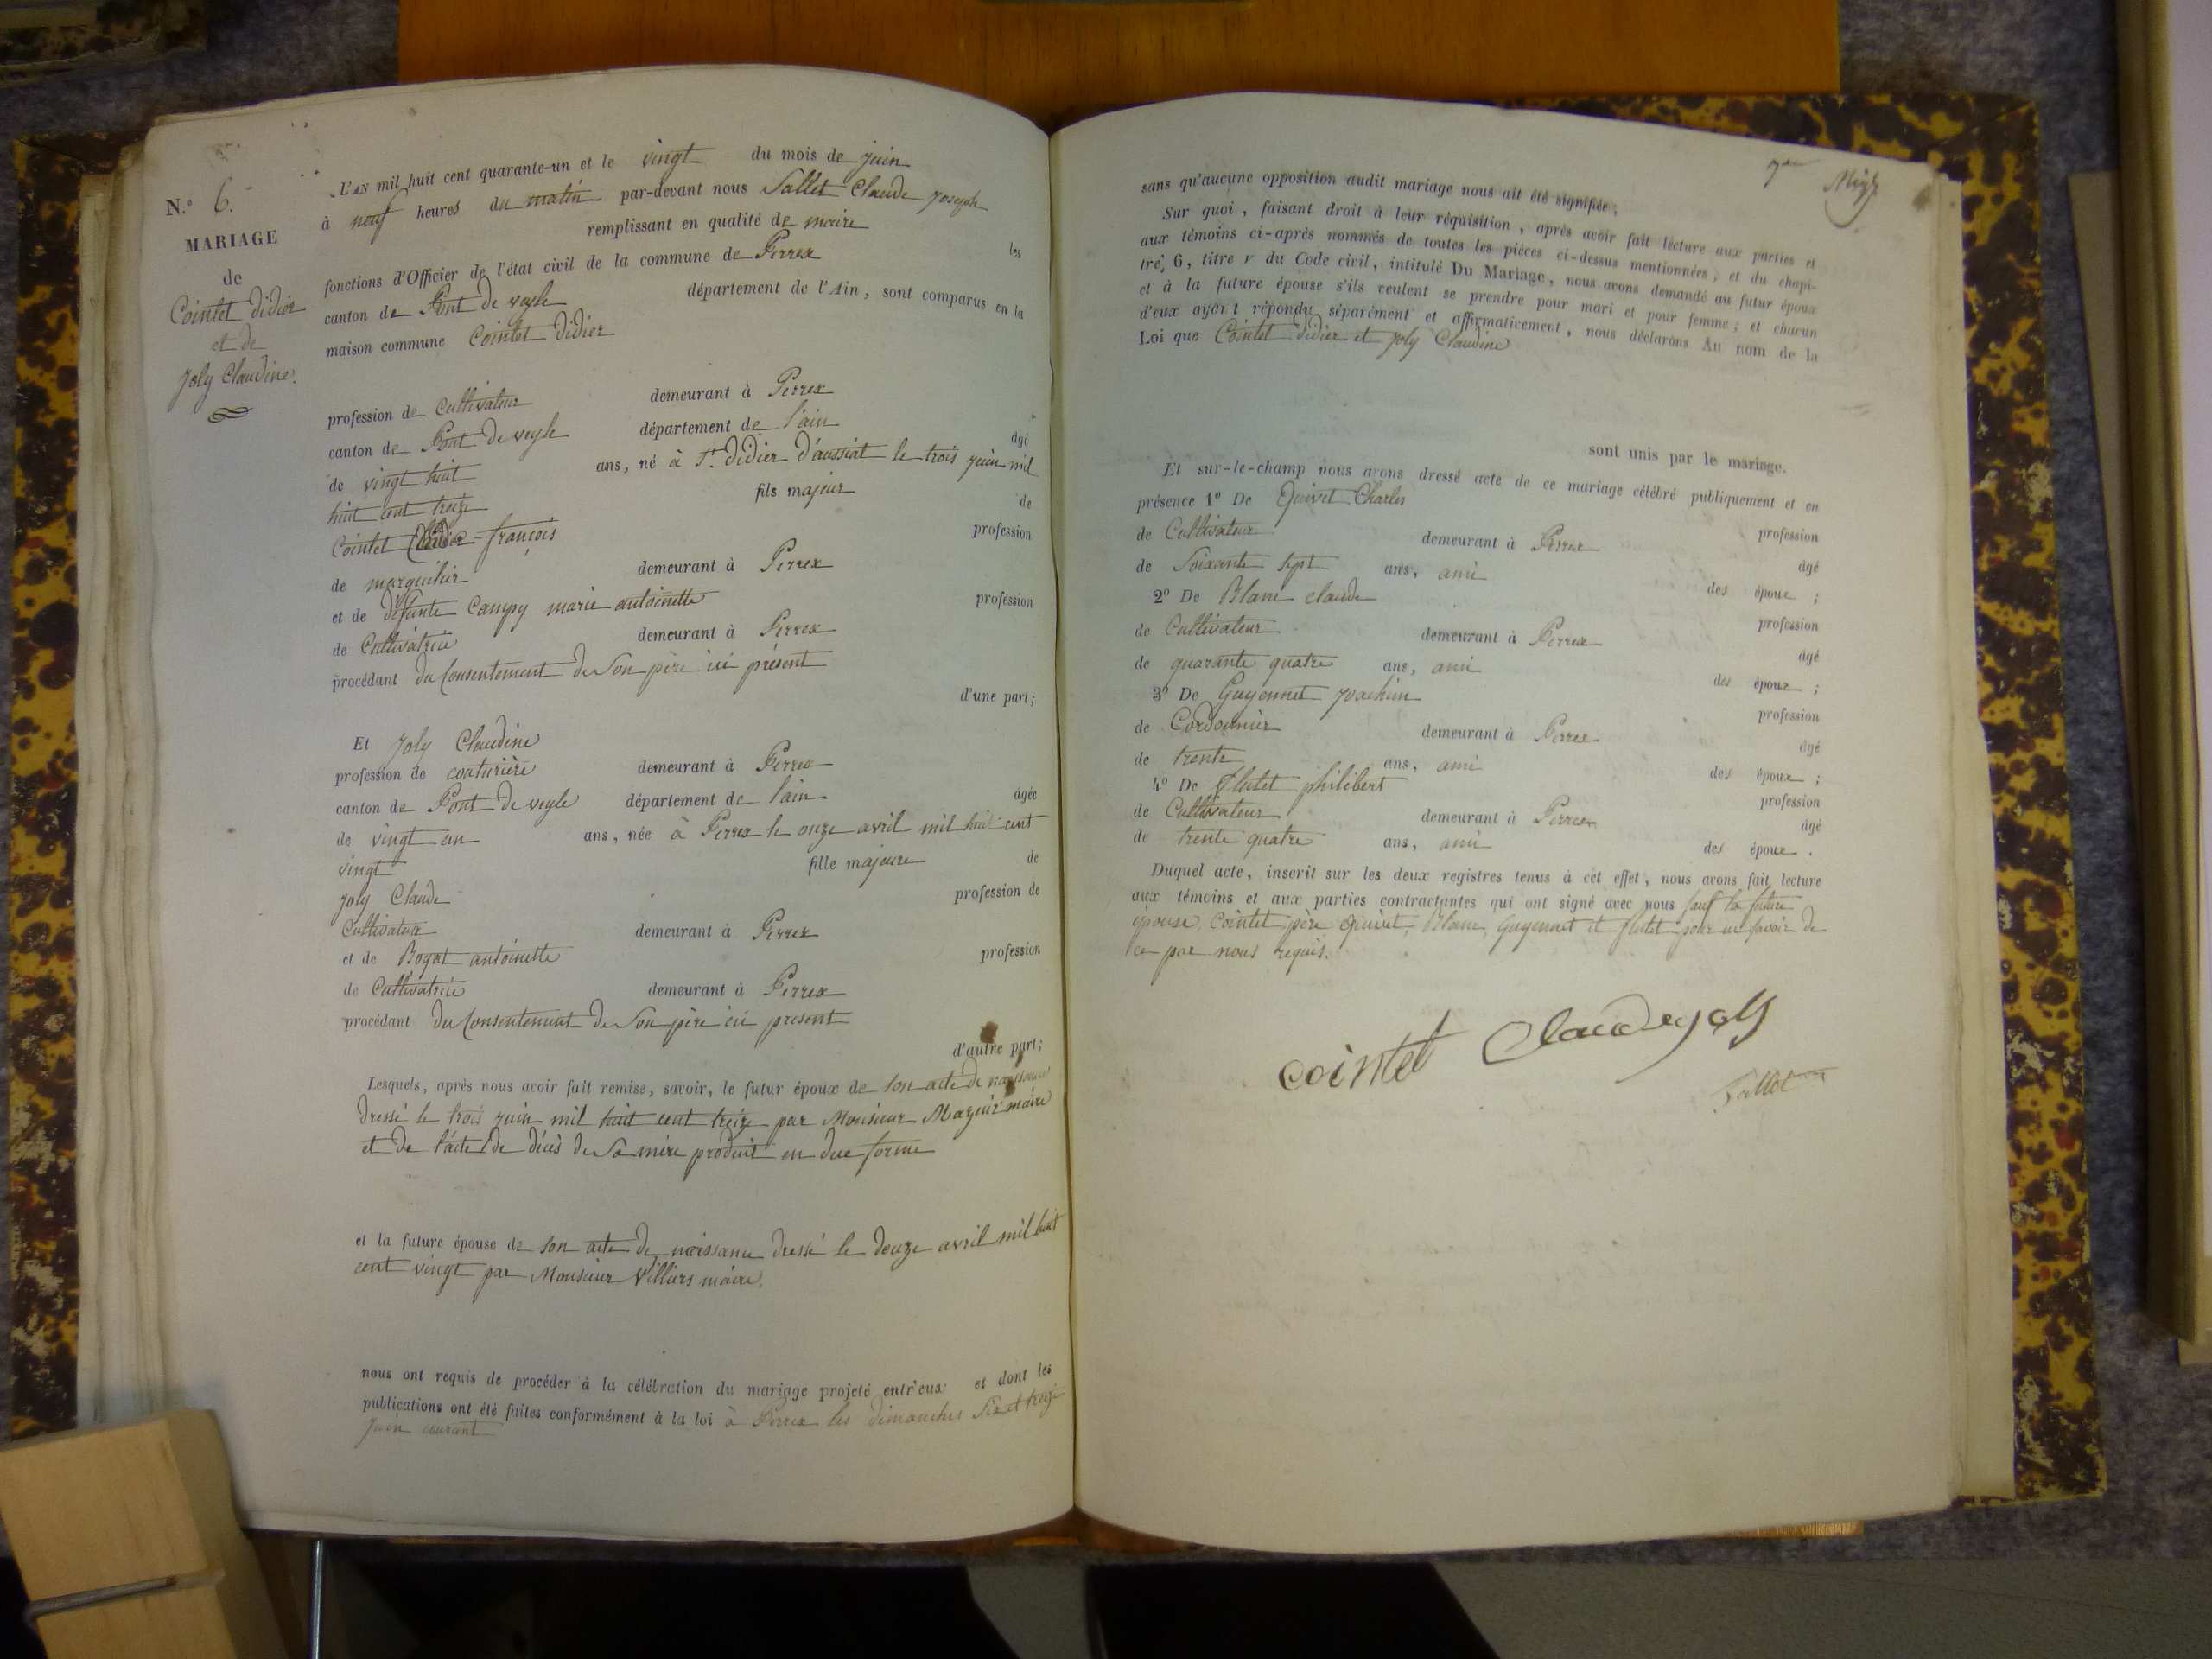 N.° 6.
MARIAGE
de
Cointet didier
et de
Joly Claudine.
L'AN mil huit cent quarante-un et le vingt du mois de juin
à neuf heures du matin par-devant nous Sallet Claude joseph
remplissant en qualité de maire les
fonctions d'Officier de l'état civil de la commune de Perrex
canton de Pont de veyle département de l'Ain, sont comparus en la
maison commune Cointet didier
profession de Cultivateur demeurant à Perrex
canton de Pont de veyle département de l'ain âgé
de vingt huit ans, né à St didier d'aussiat le trois juin mil
huit cent treize fils majeur de
Cointet françois profession
de marguilier demeurant à Perrex
et de défunte Campy marie antoinette profession
de Cultivatrice demeurant à Perrex
procédant du Consentement de Son père ici présent
d'une part;
Et Joly Claudine
profession de couturière demeurant à Perrex
canton de Pont de veyle département de l'ain âgée
de vingt un ans, née à Perrex le onze avril mil huit cent
vingt fille majeure de
joly Claude profession de
Cultivateur demeurant à Perrex
et de Boyat antoinette profession
de Cultivatrice demeurant à Perrex
procédant du Consentement de Son père ici présent
d'autre part;
Lesquels, après nous avoir fait remise, savoir, le futur époux de son acte de naissance
dressé le trois juin mil huit cent treize par Monsieur maire
et de l'acte de décès de Sa mère produit en due forme
et la future épouse de son acte de naissance dressé le douze avril mil huit
cent vingt par Monsieur Villiers maire.
nous ont requis de procéder à la célébration du mariage projeté entr'eux et dont les
publications ont été faites conformément à la loi à Perrex les dimanches Six et treize
juin courant
sans qu'aucune opposition audit mariage nous ait été signifiée;
Sur quoi, faisant droit à leur réquisition, après avoir fait lecture aux parties et
aux témoins ci-après nommés de toutes les pièces ci-dessus mentionnées, et du chapi-
tre 6, titre V du Code civil, intitulé Du Mariage, nous avons demandé au futur époux
et à la future épouse s'ils veulent se prendre pour mari et pour femme; et chacun
d'eux ayant répondu séparément et affirmativement, nous déclarons Au nom de la
Loi que Cointet didier et joly Claudine
sont unis par le mariage.
Et sur-le-champ nous avons dressé acte de ce mariage célébré publiquement et en
présence 1° De Quivet Charles profession
de Cultivateur demeurant à Perrex âgé
de Soixante Sept ans, ami des époux;
2° De Blanc claude profession
de Cultivateur demeurant à Perrex âgé
de quarante quatre ans, ami des époux;
3° De Guyennet joachim profession
de Cordonnier demeurant à Perrex âgé
de trente ans, ami des époux;
4° De flutet philibert profession
de Cultivateur demeurant à Perrex âgé
de trente quatre ans, ami des époux.
Duquel acte, inscrit sur les deux registres tenus à cet effet, nous avons fait lecture
aux témoins et aux parties contractantes qui ont signé avec nous sauf la future
épouse, Cointet père Quivet, Blanc, Guyennet et flutet pour ne savoir de
ce par nous requis.
cointet Claude joly
Sallet